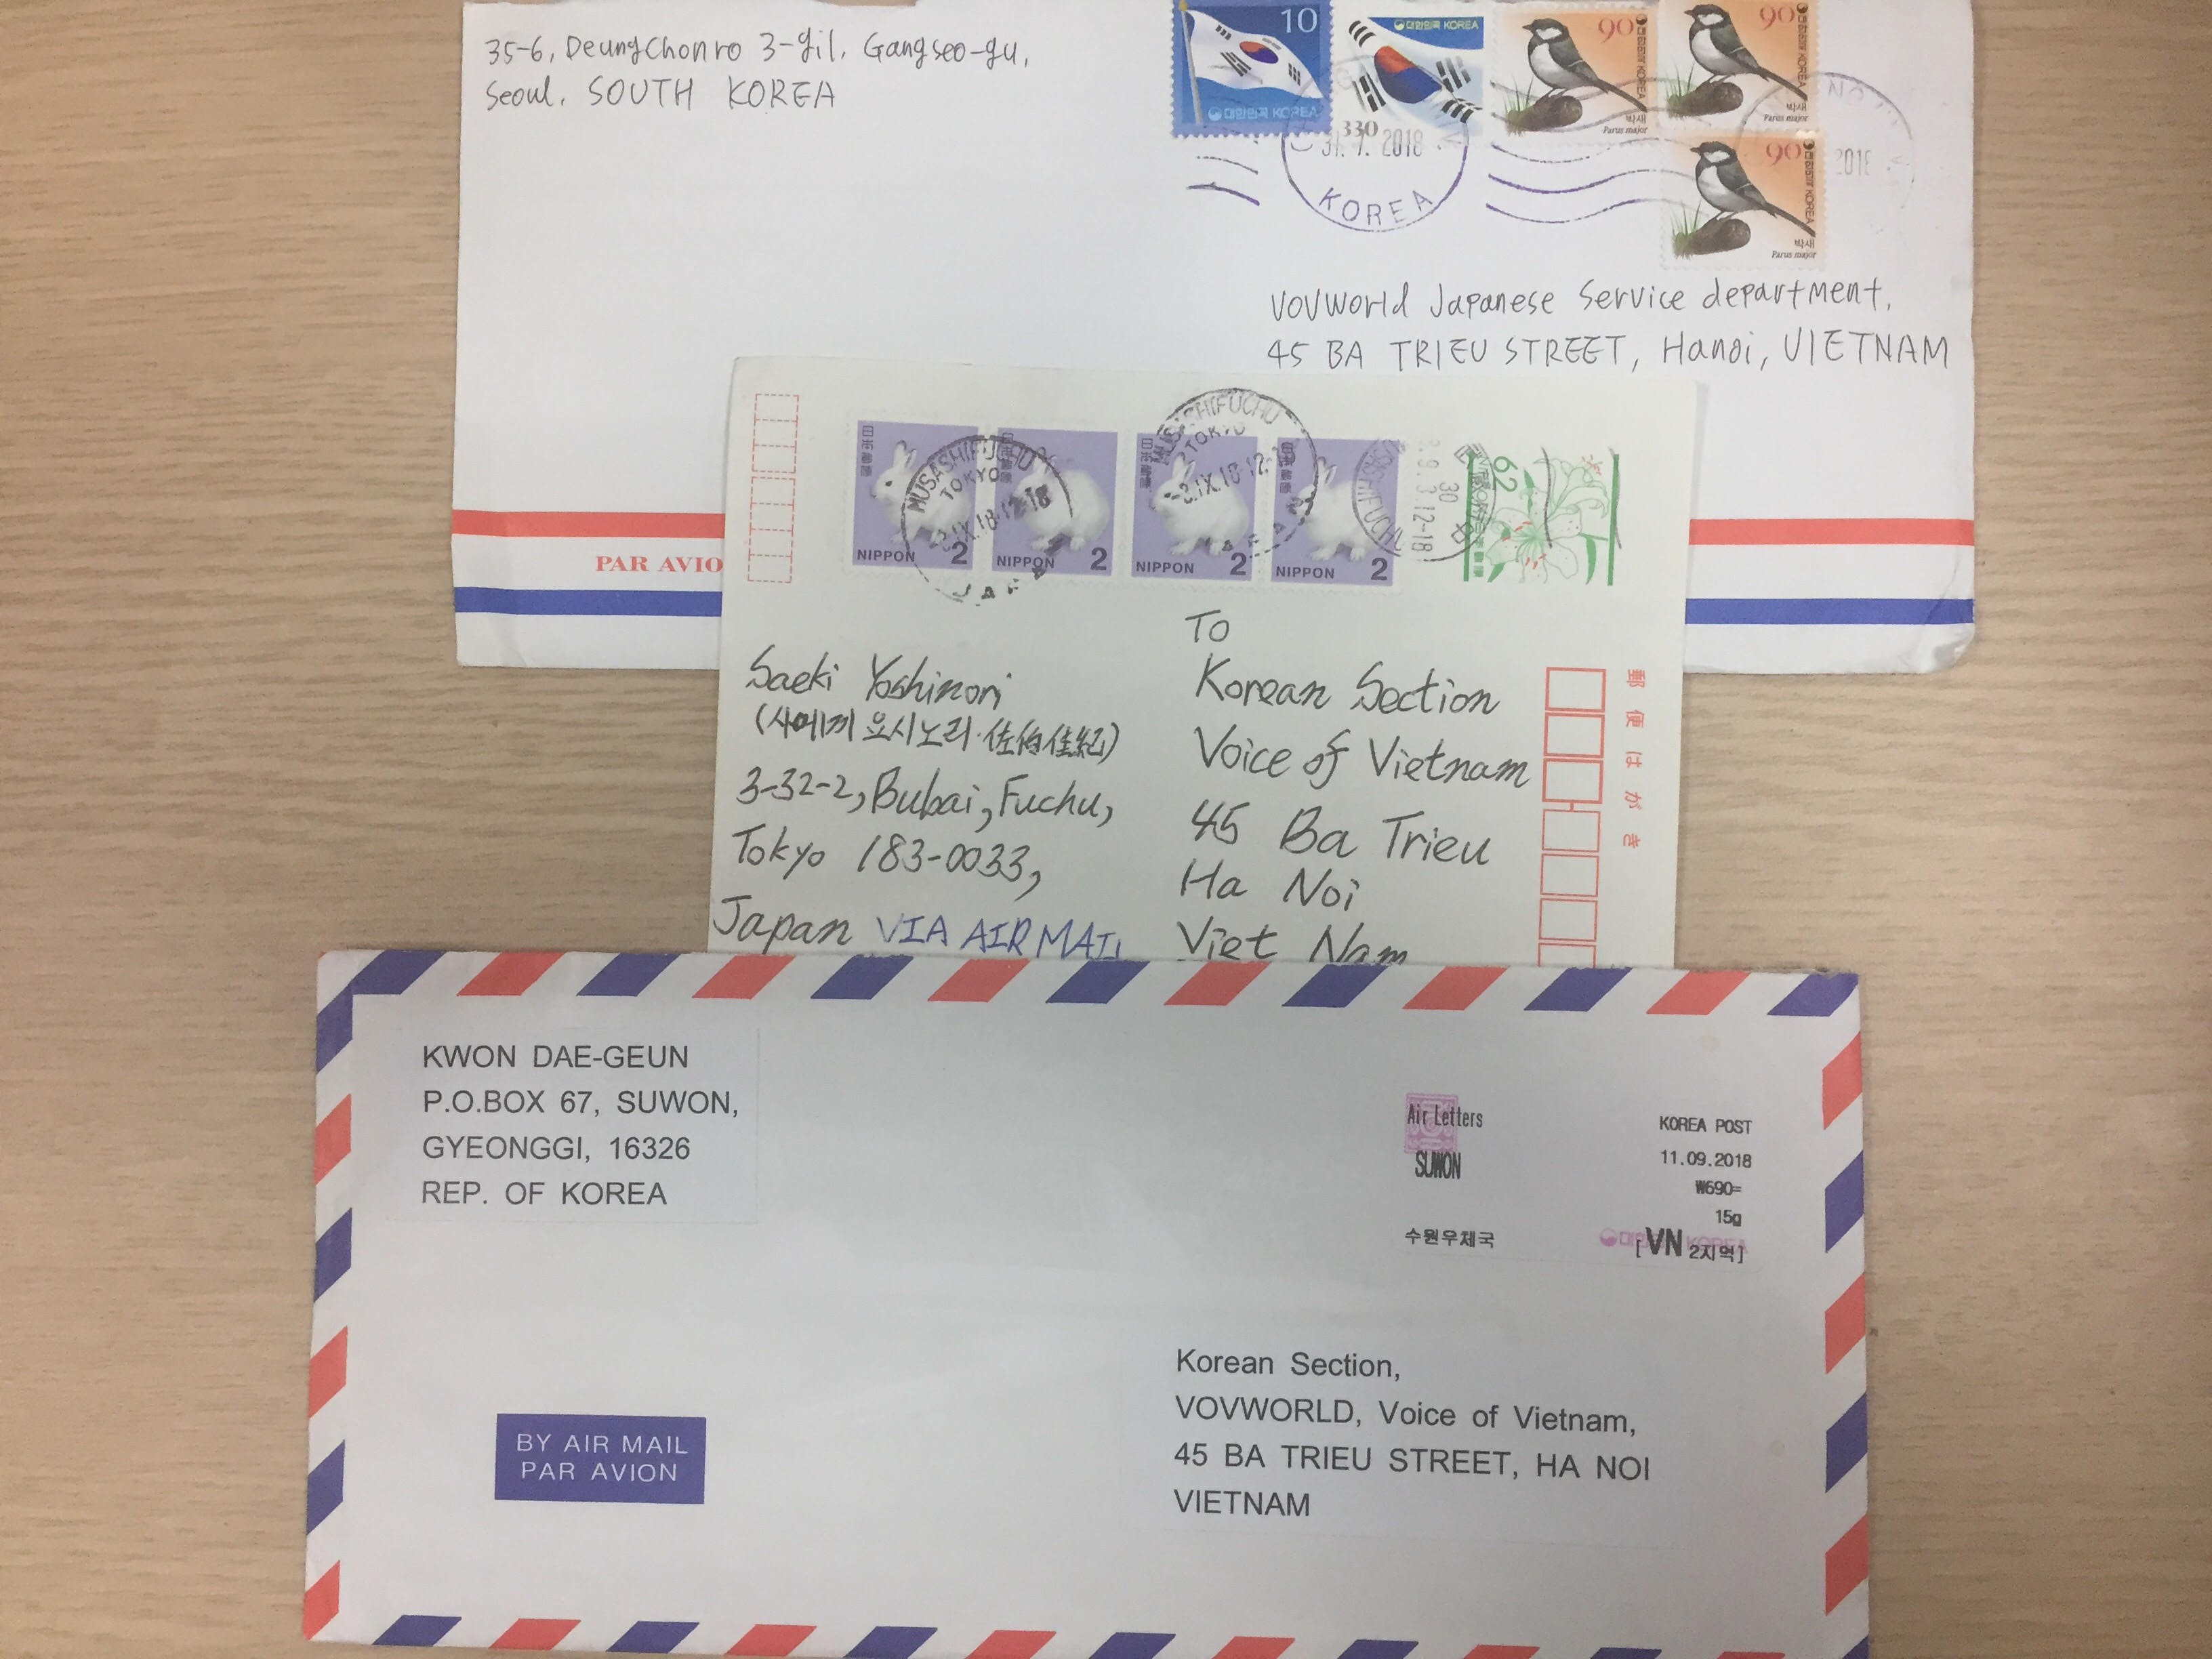 35-6, Deungchonro 3-gil, Gangseo-gu,
Seoul, SOUTH KOREA
10
대한민국 KOREA
대한민국 KOREA
330
90
대한민국 KOREA
박새
Parus major
90
대한민국 KOREA
박새
Parus major
90
대한민국 KOREA
박새
Parus major
31. 7. 2018
KOREA
2018
VOVWorld Japanese Service department,
45 BA TRIEU STREET, Hanoi, VIETNAM
PAR AVIO
日本郵便
NIPPON 2
NIPPON 2
NIPPON 2
NIPPON 2
62
MUSASHIFUCHU
TOKYO
IX.18.12-18
JAPAN
MUSASHIFUCHU
TOKYO
30
9.3.12-18
郵便はがき
Saeki Yoshinori
(사에끼 요시노리·佐伯佳紀)
3-32-2, Bubai, Fuchu,
Tokyo 183-0033,
Japan VIA AIR MAIL
To
Korean Section
Voice of Vietnam
45 Ba Trieu
Ha Noi
Viet Nam
KWON DAE-GEUN
P.O.BOX 67, SUWON,
GYEONGGI, 16326
REP. OF KOREA
Air Letters
SUWON
수원우체국
KOREA POST
11.09.2018
₩690=
15g
[VN 2지역]
KOREA
BY AIR MAIL
PAR AVION
Korean Section,
VOVWORLD, Voice of Vietnam,
45 BA TRIEU STREET, HA NOI
VIETNAM